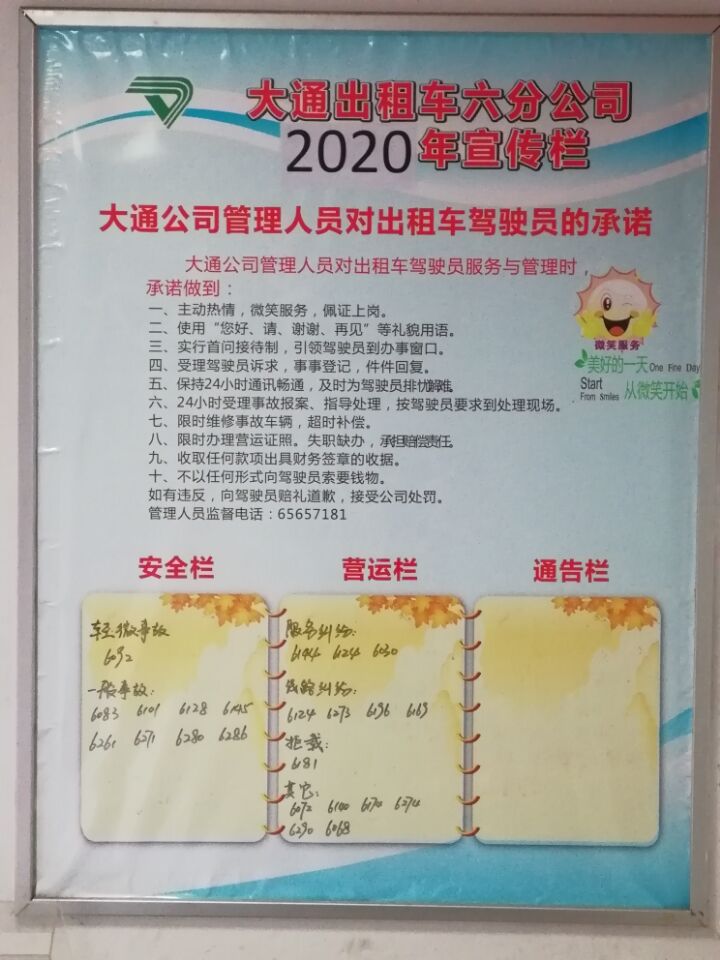 大通出租车六分公司
2020年宣传栏
大通公司管理人员对出租车驾驶员的承诺
大通公司管理人员对出租车驾驶员服务与管理时，
承诺做到：
一、主动热情，微笑服务，佩证上岗。
二、使用“您好、请、谢谢、再见”等礼貌用语。
三、实行首问接待制，引领驾驶员到办事窗口。
四、受理驾驶员诉求，事事登记，件件回复。
五、保持24小时通讯畅通，及时为驾驶员排忧解难。
六、24小时受理事故报案、指导处理，按驾驶员要求到处理现场。
七、限时维修事故车辆，超时补偿。
八、限时办理营运证照。失职缺办，承担赔偿责任。
九、收取任何款项出具财务签章的收据。
十、不以任何形式向驾驶员索要钱物。
如有违反，向驾驶员赔礼道歉，接受公司处罚。
管理人员监督电话：65657181
微笑服务
美好的一天 One Fine Day
Start
From Smiles 从微笑开始
安全栏
轻微事故
6092
一般事故：
6083 6101 6128 6145
6261 6271 6280 6286
营运栏
服务纠纷：
6144 6124 6030
线路纠纷：
6124 6273 6196 6169
拒载：
6181
其它：
6072 6140 6170 6274
6290 6068
通告栏